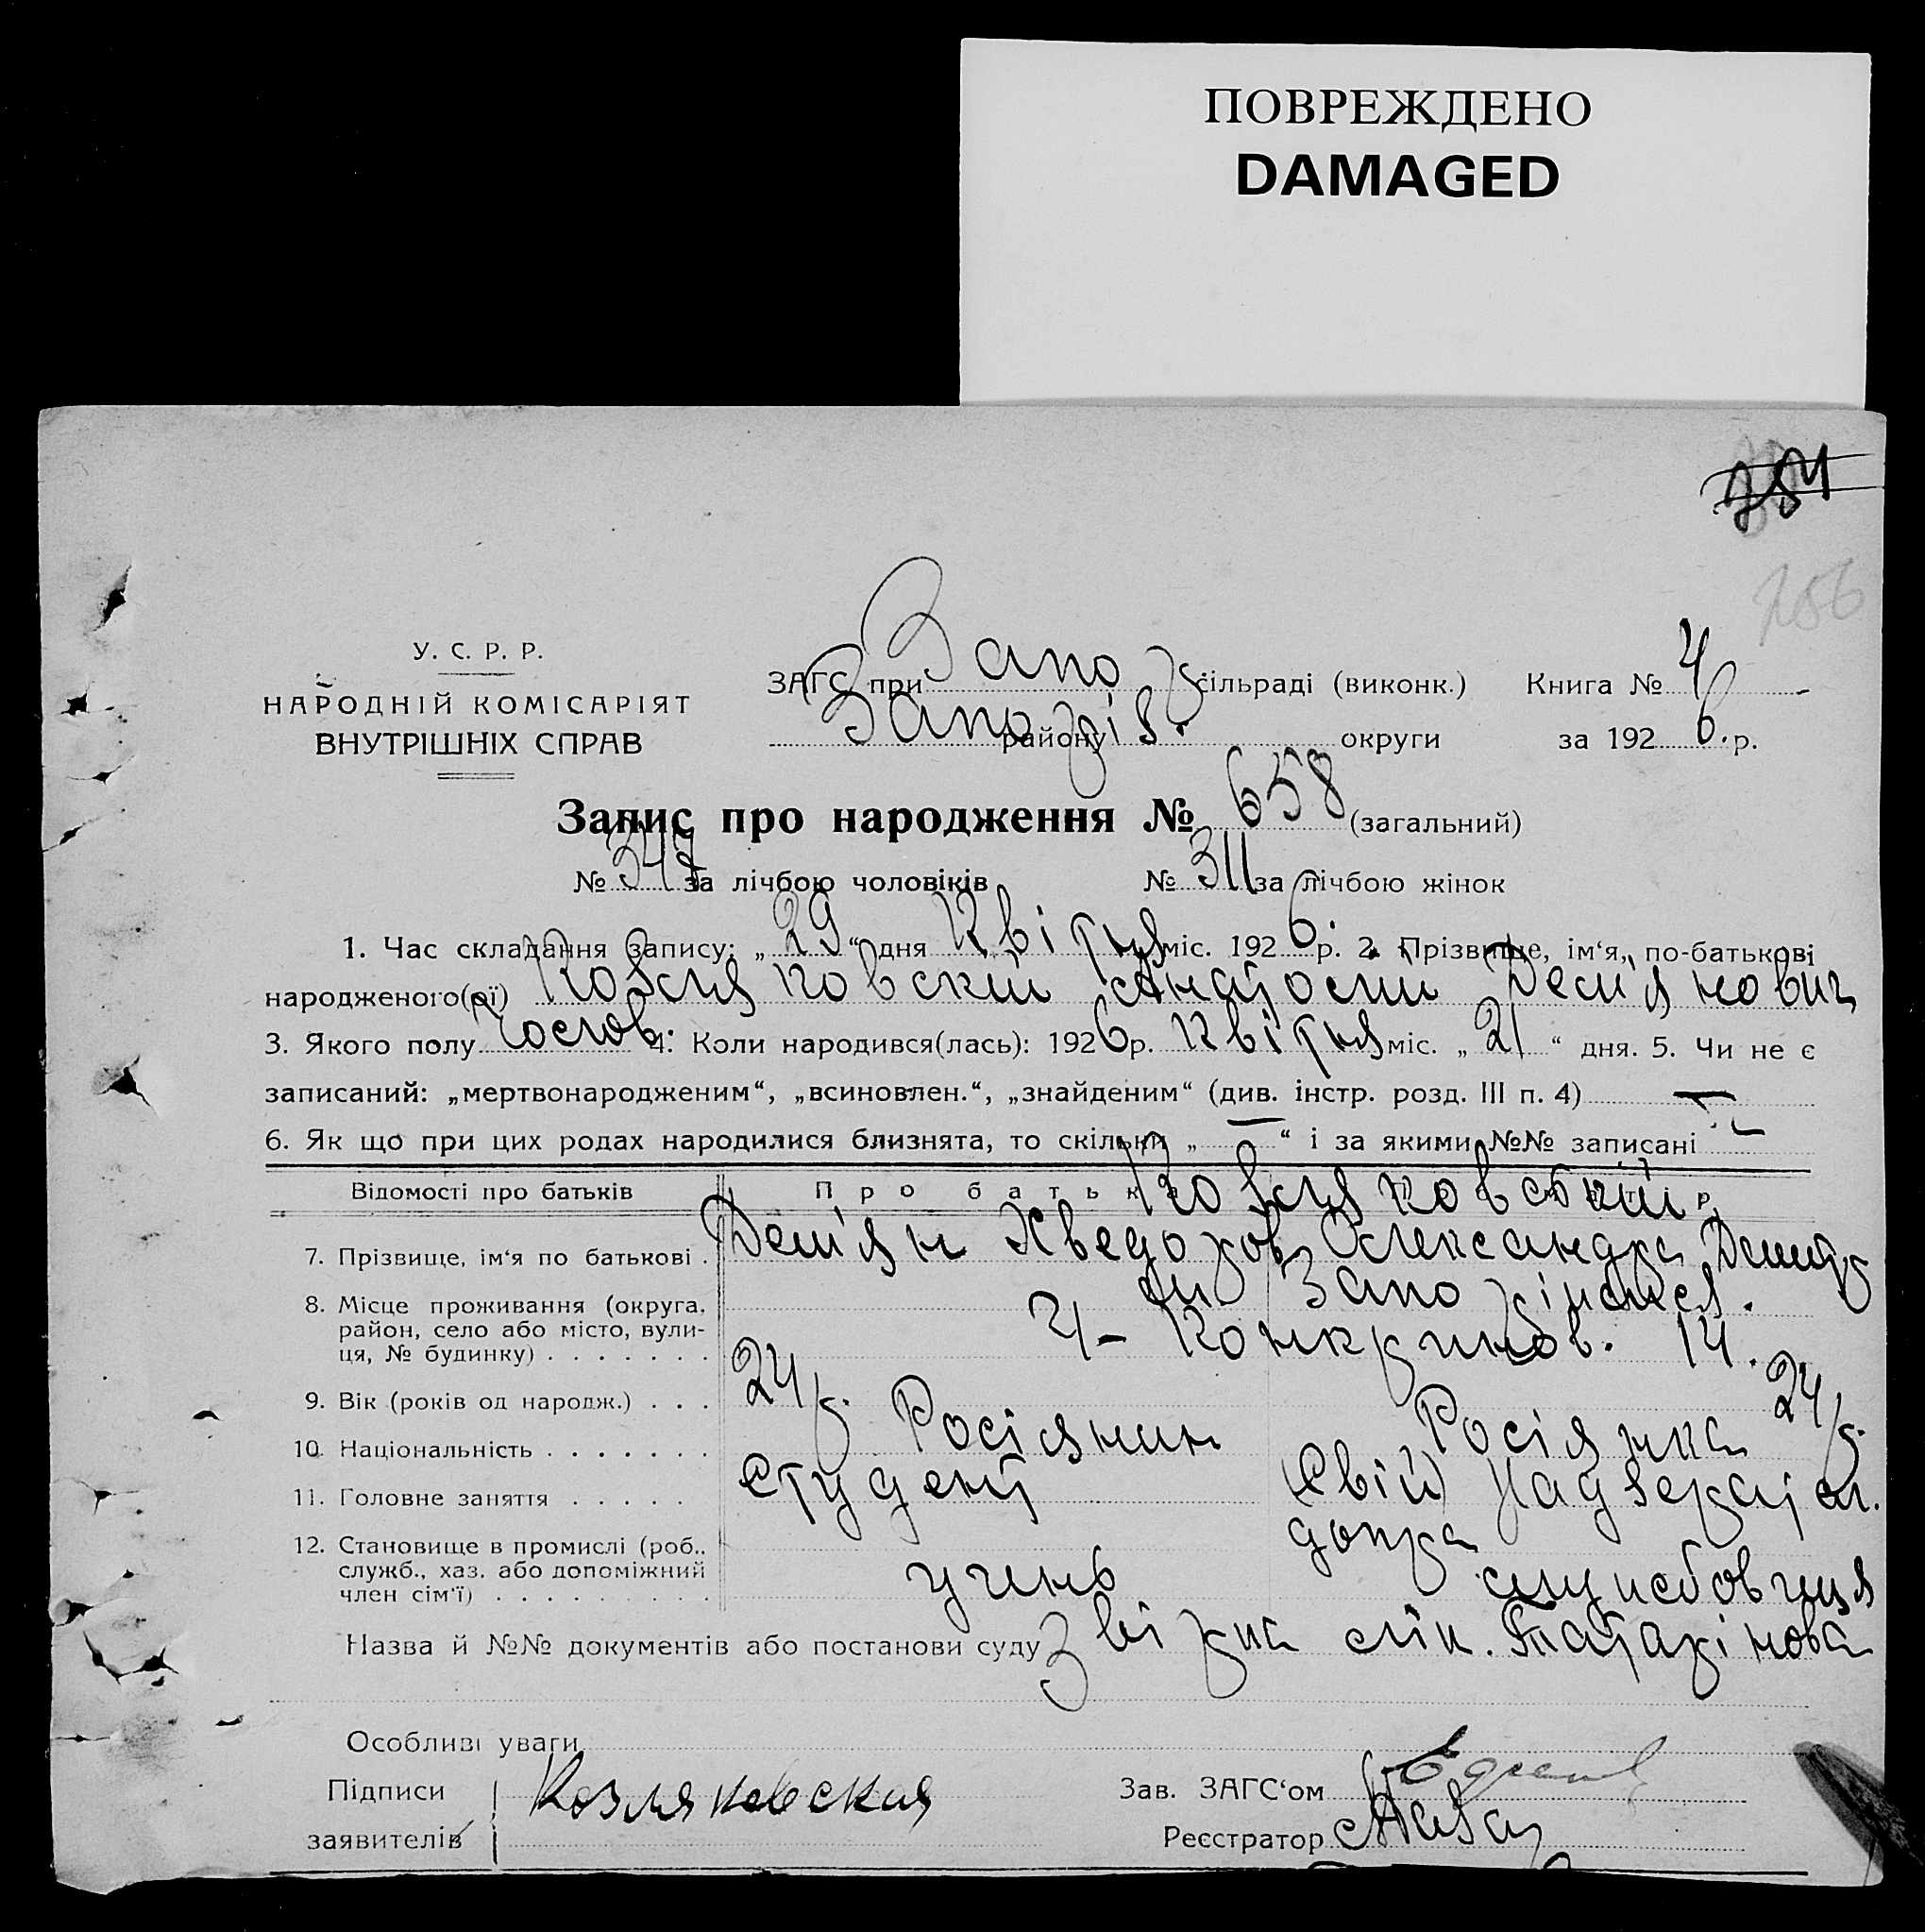 ПОВРЕЖДЕНО
DAMAGED
254
256
У. С. Р. Р.
НАРОДНІЙ КОМІСАРІЯТ
ВНУТРІШНІХ СПРАВ
ЗАГС при Запор сільраді (виконк.) Книга № 4
Запоріз. району округи за 1926 р.
Запис про народження № 658 (загальний)
№ 347 за лічбою чоловіків № 311 за лічбою жінок
1. Час складання запису: „29“ дня Квітня міс. 1926 р. 2. Прізвище, ім‘я, по-батькові
народженого(ої) Козляковский Анатолий Дем'янович
3. Якого полу чолов. 4. Коли народився(лась): 1926 р. Квітня міс. „21“ дня. 5. Чи не є
записаний: „мертвонародженим“, „всиновлен.“, „знайденим“ (див. інстр. розд. III п. 4) —
6. Як що при цих родах народилися близнята, то скільки „—“ і за якими №№ записані —
Відомості про батьків Про батька
Козляковський
7. Прізвище, ім‘я по батькові . Дем'ян Хведоров Олександра Дмитр
8. Місце проживання (округа, м Запоріжжя.
район, село або місто, вули-
ця, № будинку) . . . . . . . 14.
9. Вік (років од народж.) . . . 24 р. 24 р.
10. Національність . . . . . . . Росіянин Росіянка
11. Головне заняття . . . . . студент (Свій) Надзирател.
допра
12. Становище в промислі (роб.,
служб., хаз. або допоміжний учень службовиця
член сім‘ї) . . . . . . . . .
Назва й №№ документів або постанови суду Звірка лік. Татарінова
Особливі уваги
Підписи Козляковская Зав. ЗАГС‘ом
заявителів Реєстратор